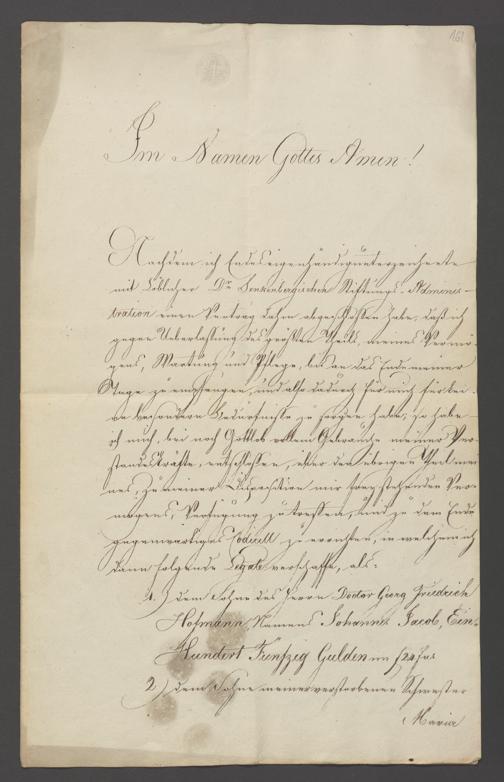 161
Im Namen Gottes Amen!
Nachdem ich Endes eigenhändig unterzeichnete
mit Löblicher Dr. Senkenbergischen Stiftungs-Adminis-
tration einen Vertrag dahin abgeschlossen habe, daß ich
gegen Ueberlassung des größten Theils, meines Vermö-
gens, Wartung und Pflege, bis an das Ende meiner
Tage zu empfangen, und also dadurch für mich für kei-
ne besondern Bedürfnisse zu sorgen habe; so habe
ich mich, bei noch Gottlob vollem Gebrauche meiner Ver-
standeskräfte, entschlossen, über den übrigen Theil mei-
nes, zu meiner Disposition mir freystehenden Ver-
mögens, Verfügung zu treffen, und zu dem Ende
gegenwärtiges Codicill zu errichten, in welchem ich
dann folgende Legate verschaffe, als:
1.) dem Sohne des Herrn Doctor Georg Friedrich
Hofmann, Namens Johannes Jacob, Ein-
Hundert Funfzig Gulden im f24 Fus
2) dem Sohne meiner verstorbenen Schwester
Maria